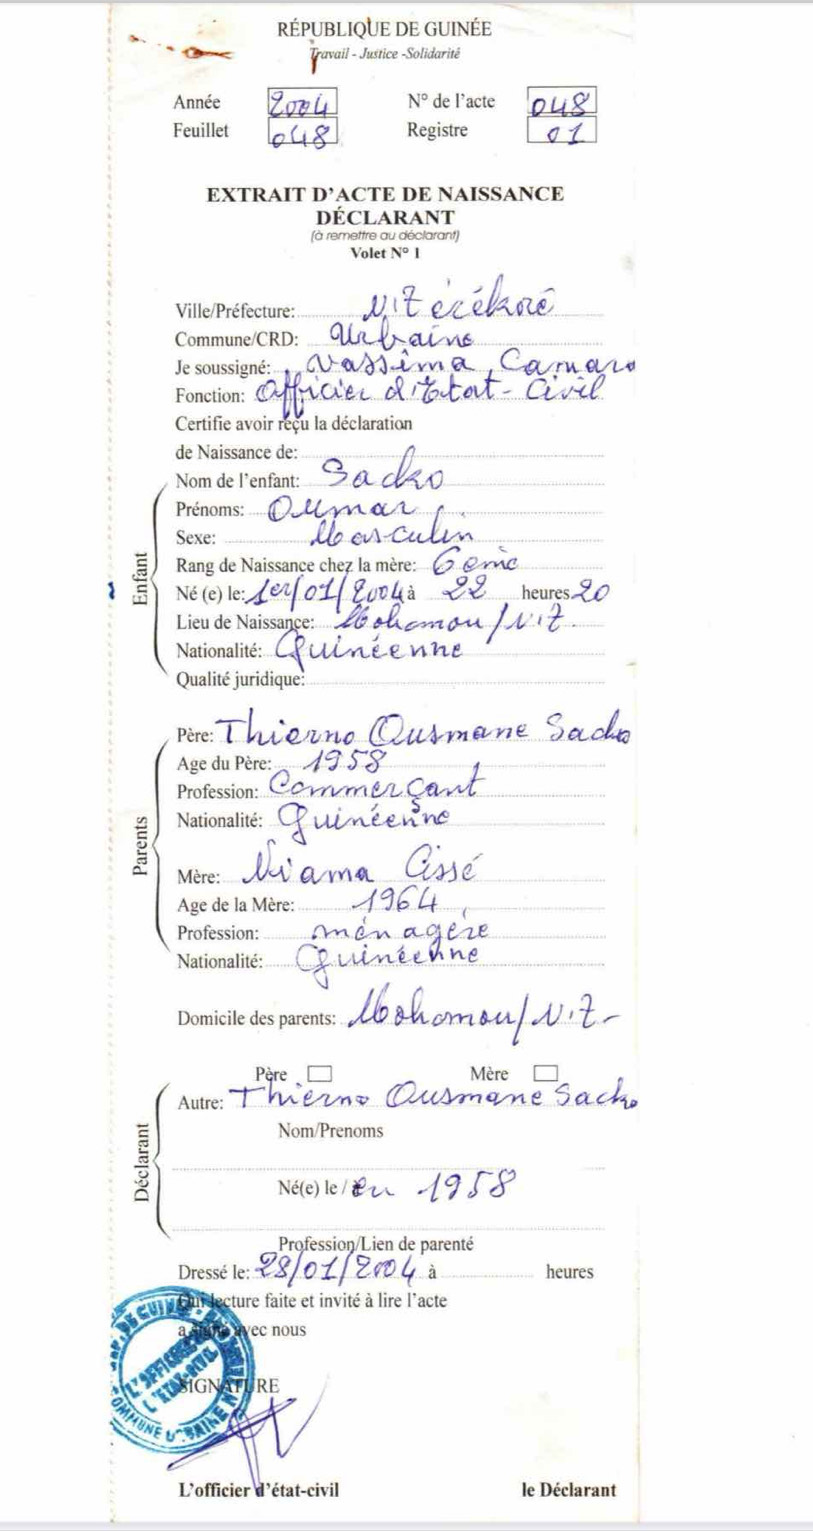 RÉPUBLIQUE DE GUINÉE
Travail - Justice -Solidarité
Année 2004 N° de l'acte 048
Feuillet 048 Registre 01
EXTRAIT D'ACTE DE NAISSANCE
DÉCLARANT
(à remettre au déclarant)
Volet N° 1
Ville/Préfecture: N'Zérékoré
Commune/CRD: Urbaine
Je soussigné: Vassima Camara
Fonction: Officier d'Etat-Civil
Certifie avoir reçu la déclaration
de Naissance de:
Nom de l'enfant: Sacko
Prénoms: Oumar
Sexe: Masculin
Rang de Naissance chez la mère: 6ème
Né (e) le: 1er/01/2004 à 22 heures 20
Lieu de Naissance: Mohomou/N'Z.
Nationalité: Guinéenne
Qualité juridique:
Enfant
Père: Thierno Ousmane Sacko
Age du Père: 1958
Profession: Commerçant
Nationalité: Guinéenne
Mère: Niama Cissé
Age de la Mère: 1964
Profession: ménagère
Nationalité: Guinéenne
Parents
Domicile des parents: Mohomou/N'Z-
Père Mère
Autre: Thierno Ousmane Sacko
Nom/Prenoms
Né(e) le / en 1958
Profession/Lien de parenté
Déclarant
Dressé le: 28/01/2004 à heures
Qui lecture faite et invité à lire l'acte
a signé avec nous
SIGNATURE
L'OFFICIER
L'ETAT-CIVIL
COMMUNE URBAINE
L'officier d'état-civil le Déclarant